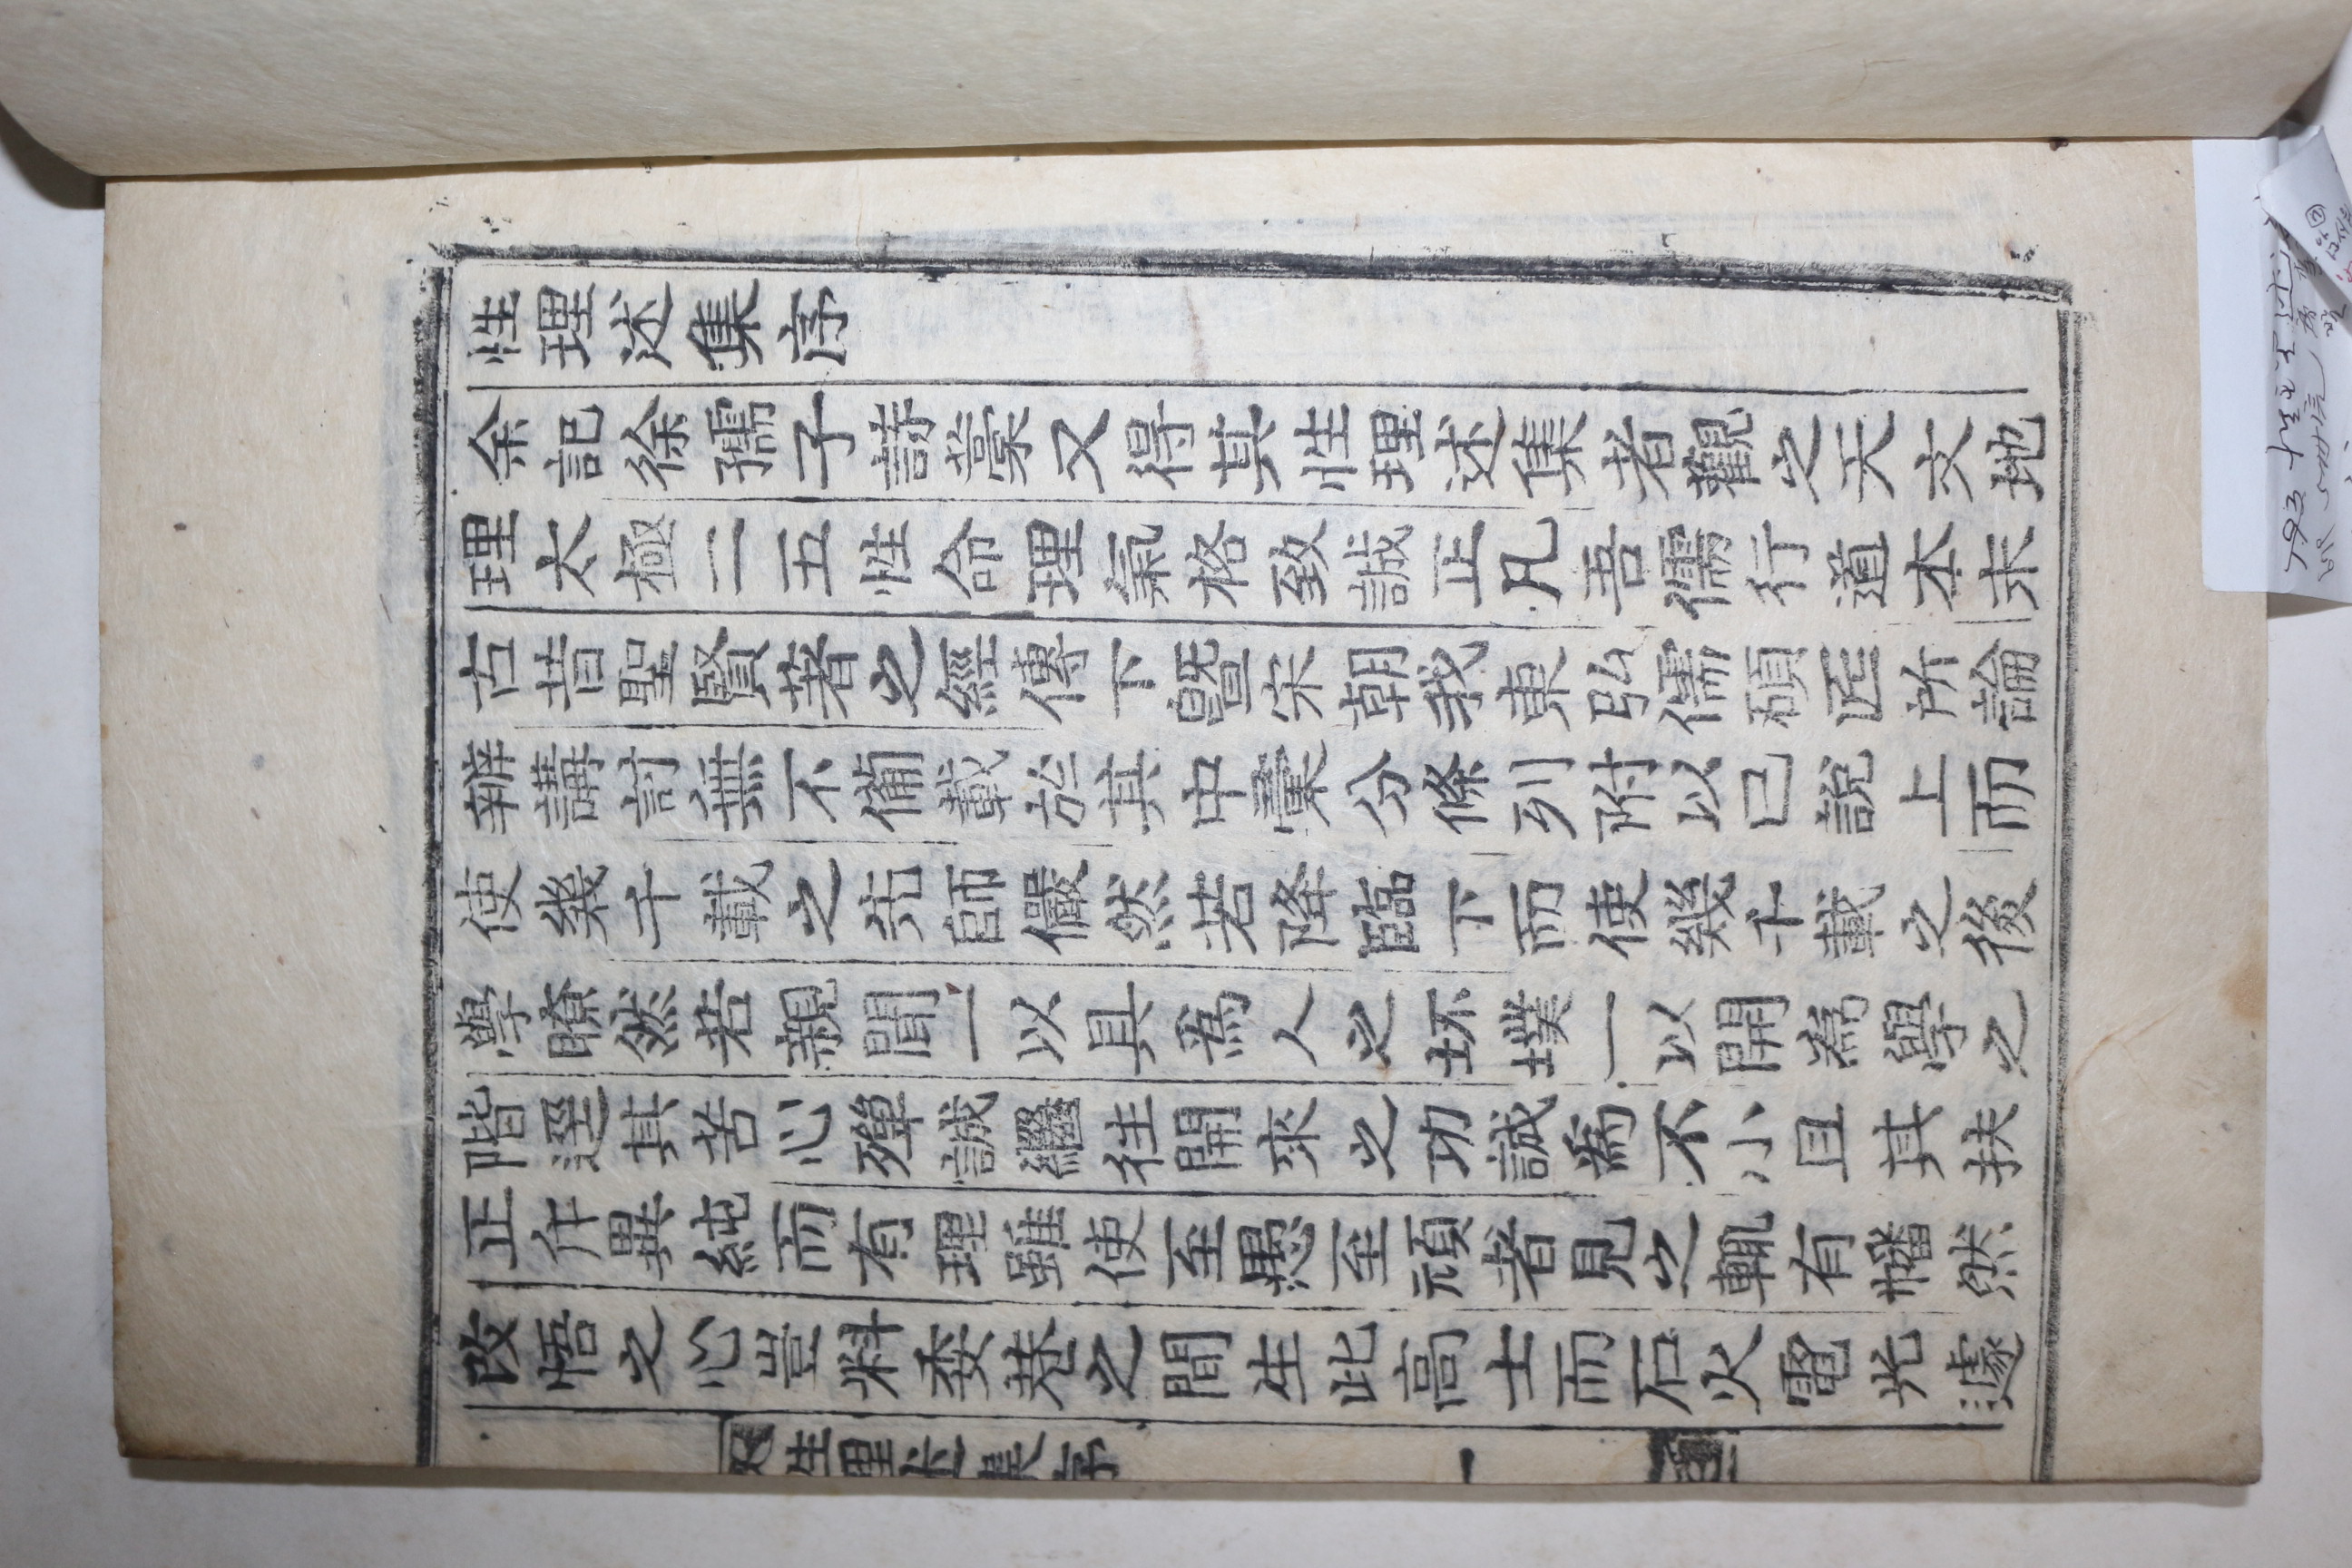 性理述集序
余記徐孺子詩藁又得其性理述集者觀之天文地
理太極二五性命理氣格致誠正凡吾儒行道本末
古昔聖賢著之經傳下曁宋朝我東弘儒碩匠所論
辨講討無不備載於其中彙分條列附以已說上而
使幾千載之先師儼然若降臨下而使幾千載之後
學暸然若親聞一以具爲人之坏墣一以開爲學之
階逕其苦心殫誠繼往開來之功誠爲不小且其扶
正斥異純而有理雖使至愚至頑者見之輒有幡然
改悟之心豈料委巷之間生此高士而石火電光遽
性理述集序
一
793